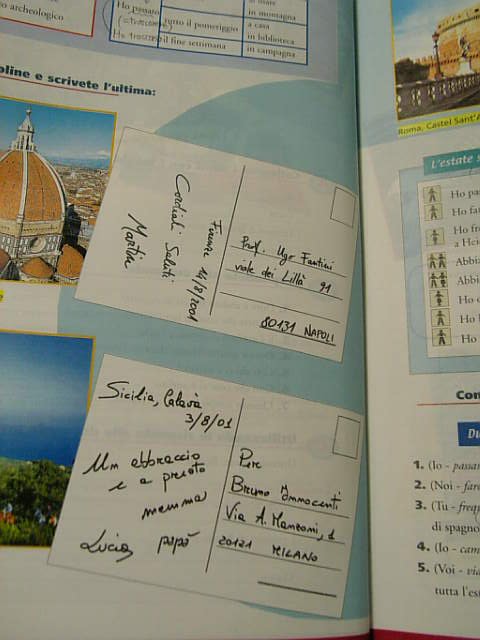 o archeologico
Ho passato
tutto il pomeriggio
il fine settimana
al mare
in montagna
a casa
in biblioteca
in campagna
oline e scrivete l'ultima:
Firenze 14/8/2001
Cordiali Saluti
Martina
Prof. Ugo Fantini
viale dei Lillà 91
80131 NAPOLI
Sicilia, Calavà
3/8/01
Un abbraccio
e a presto
mamma
papà
Lucia
Per
Bruno Innocenti
Via A. Manzoni, 1
20121 MILANO
Roma, Castel Sant'A
L'estate s
Ho pa
Ho fa
Ho fre
a Hei
Abbia
Abbia
Ho c
Ho l
Ho
Con
Du
1. (Io - passar
2. (Noi - fare
3. (Tu - freq
di spagno
4. (Io - cam
5. (Voi - via
tutta l'es